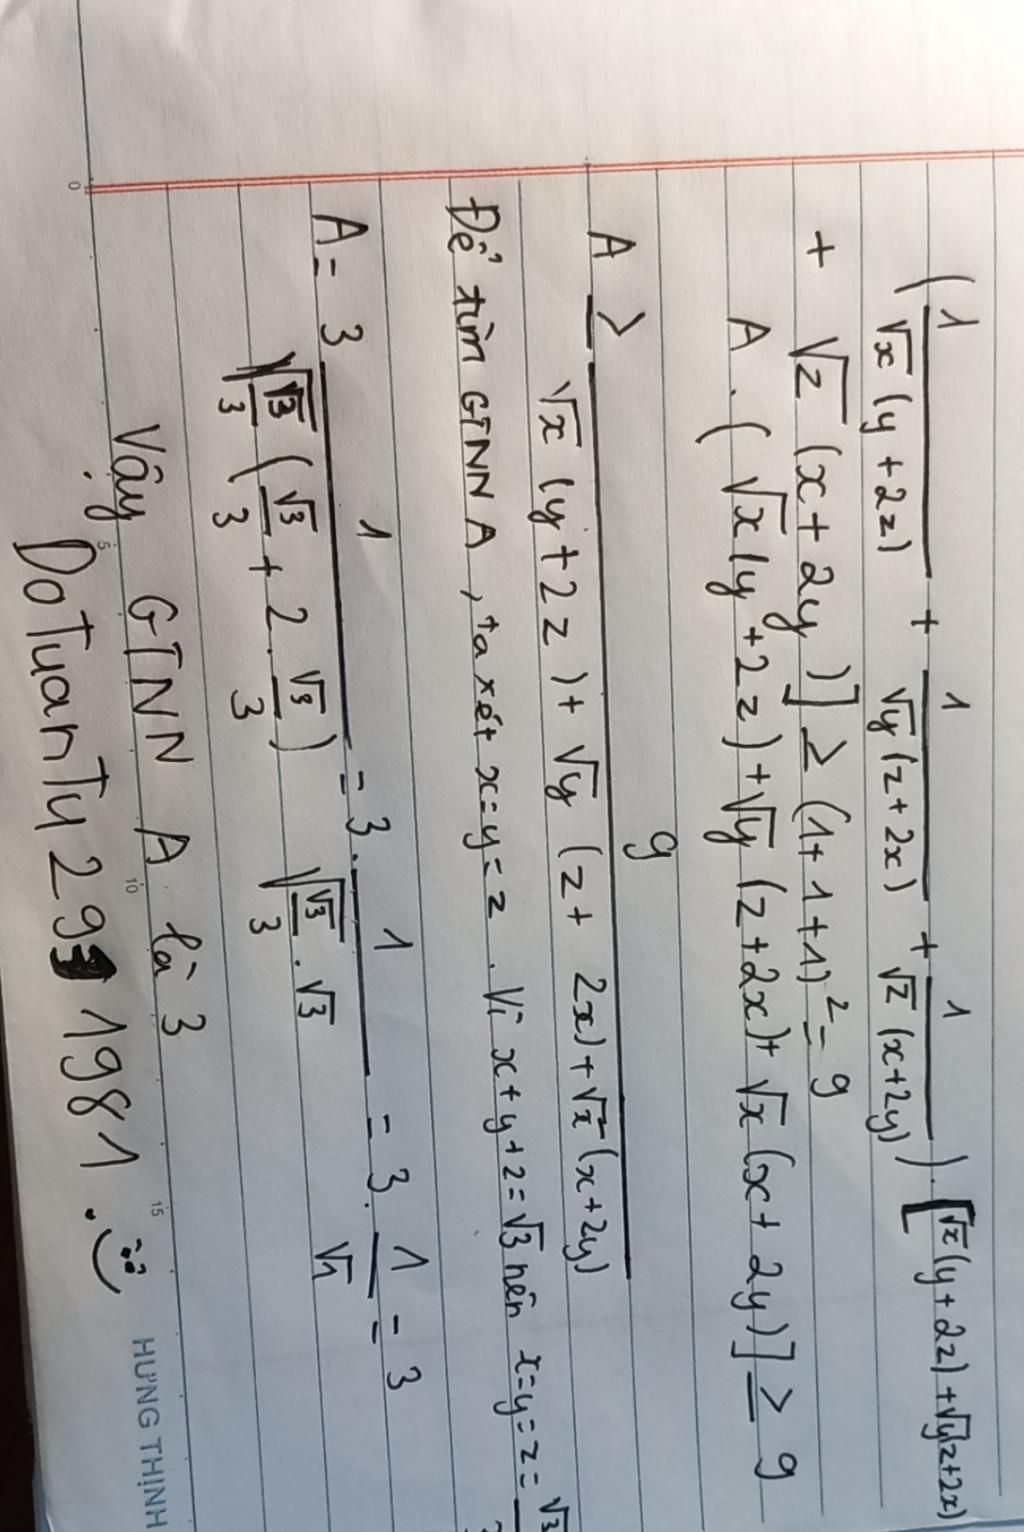 ( 1/(√x (y + 2z)) + 1/(√y (z + 2x)) + 1/(√z (x+2y)) ) . [√x (y + 2z) + √y(z+2x)
+ √z (x + 2y)] ≥ (1+1+1)² = 9
A . ( √x (y + 2z) + √y (z + 2x) + √x (x + 2y)] ≥ 9
A ≥ 9/(√x (y + 2z) + √y (z + 2x) + √x (x + 2y))
Để tìm GTNN A , ta xét x = y = z . Vì x + y + z = √3 nên x = y = z = √3
A = 3 1/(√(√3/3) (√3/3 + 2 . √3/3)) = 3 . 1/(√(√3/3) . √3) = 3 . 1/√1 = 3
Vậy GTNN A là 3
DoTuanTu29 1981 .
HƯNG THỊNH
0 5 10 15